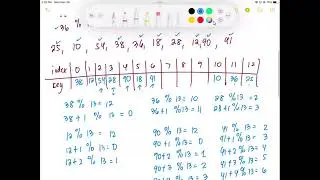 -36 %
25, 10, 54, 38, 36, 18, 28, 12, 90, 41
index 0 1 2 3 4 5 6 7 8 9 10 11 12
key 38 12 54 28 90 18 41 10 36 25
38 % 13 = 12 36 % 13 = 10 28 % 13 = 2
38 + 1 % 13 = 0 36 + 1 % 13 = 11 28 + 1 % 13 = 3
12 % 13 = 12 90 % 13 = 12 41 % 13 = 2
12 + 1 % 13 = 0 90 + 1 % 13 = 0 41 + 1 % 13 = 3
12 + 2 % 13 = 1 90 + 2 % 13 = 1 41 + 2 % 13 = 4
90 + 3 % 13 = 2 41 + 3 % 13 = 5
% 13 = 3 41 + 4 % 13 = 6